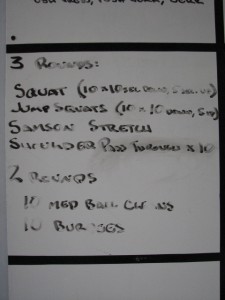 3 ROUNDS:
SQUAT (10 x 10 SEC DOWN, 5
JUMP SQUATS (10 x 10 DOWN, 5 UP)
SAMSON STRETCH
SHOULDER PASS THROUGH x 10
2 ROUNDS
10 MED BALL CLEANS
10 BURPEES